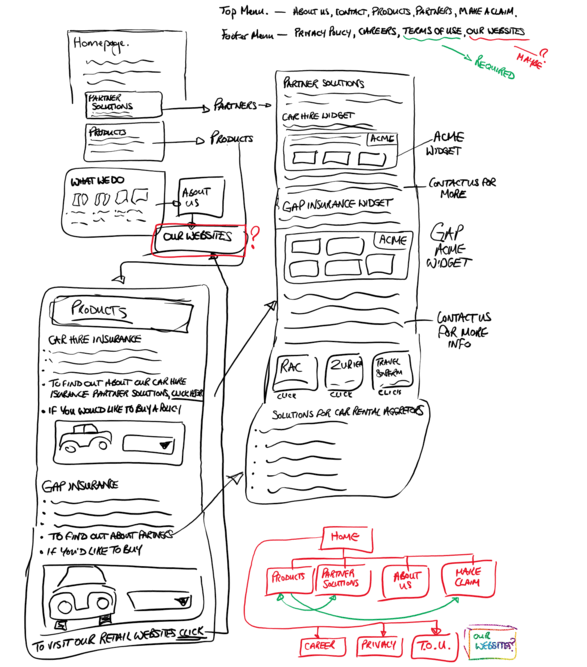 TOP MENU. — ABOUT US, CONTACT, PRODUCTS, PARTNERS, MAKE A CLAIM.
FOOTER MENU — PRIVACY POLICY, CAREERS, TERMS OF USE, OUR WEBSITES
?
MAYBE.
REQUIRED
Homepage.
PARTNER
SOLUTIONS
PARTNERS
PRODUCTS
PRODUCTS
WHAT WE DO
ABOUT
US
OUR WEBSITES
?
PRODUCTS
CAR HIRE INSURANCE
• TO FIND OUT ABOUT OUR CAR HIRE
ISURANCE PARTNER SOLUTIONS, CLICK HERE
• IF YOU WOULD LIKE TO BUY A POLICY
GAP INSURANCE
• TO FIND OUT ABOUT PARTNERS
• IF YOU'D LIKE TO BUY
TO VISIT OUR RETAIL WEBSITES CLICK
PARTNER SOLUTIONS
CAR HIRE WIDGET
ACME
ACME
WIDGET
CONTACT US FOR
MORE
GAP INSURANCE WIDGET
ACME
GAP
ACME
WIDGET
CONTACT US
FOR MORE
INFO
RAC
CLICK
CLICK
TRAVEL
CLICK
SOLUTIONS FOR CAR RENTAL
HOME
PRODUCTS
PARTNER
SOLUTIONS
ABOUT
US
MAKE
CLAIM
CAREER
PRIVACY
T.O.U.
OUR
WEBSITES?